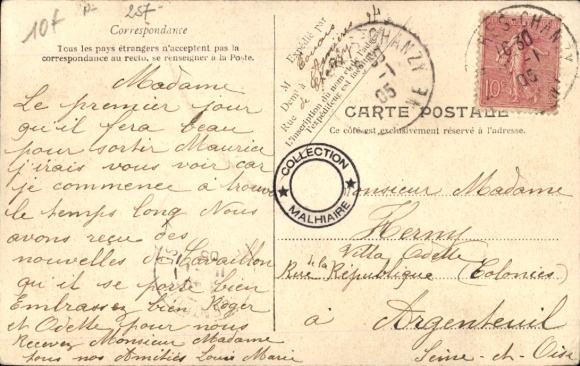 10f
25f-
Correspondance
Tous les pays étrangers n'acceptent pas la
correspondance au recto, se renseigner à la Poste.
Madame
Le premier jour
qu'il fera beau
pour sortir Maurice
j'irais vous voir car
je commence a trouver
le temps long Nous
avons reçu des
nouvelles de
qu'il se porte bien
Embrassez bien Roger
et Odette pour nous
Recevez Monsieur Madame
tous nos Amitiés Louis Marie
Expédié par
M
Demt à
Rue de
L'inscription du nom et de l'adresse de
l'expéditeur est facultative
CHANZY
05
CHANZY
05
10c
CARTE POSTALE
Ce côté est exclusivement réservé à l'adresse.
COLLECTION
MALHIAIRE
Monsieur Madame
Villa Odette
Rue de la République (Colonies)
à Argenteuil
Seine-et-Oise